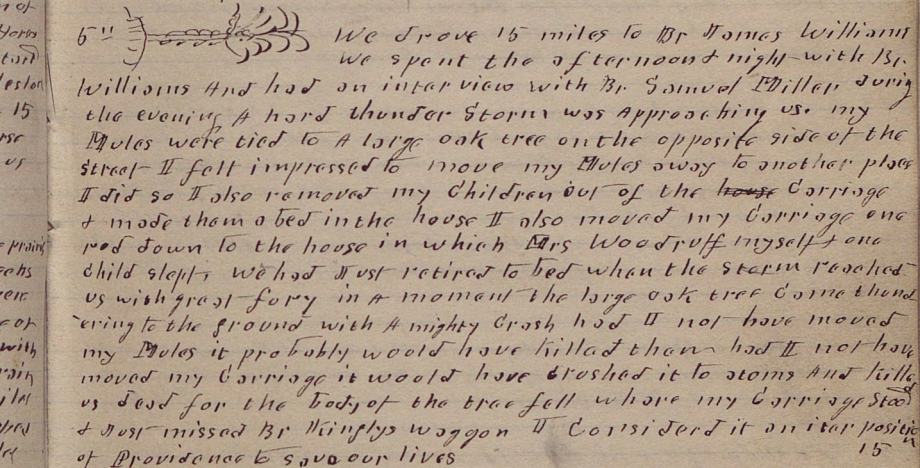 5th We drove 15 miles to Br James Williams
we spent the afternoon & night with Br.
Williams And had an interview with Br. Samuel Miller during
the evening A hard thunder Storm was Approaching us. my
Mules were tied to A large oak tree on the opposite side of the
Street I felt impressed to move my Mules away to another place
I did so I also removed my Children out of the house Carriage
& made them a bed in the house I also moved my Carriage one
rod down to the house in which Mrs Woodruff myself & one
Child slept, we had Just retired to bed when the storm reached
us with great fury in A moment the large oak tree Came thund
ering to the ground with A mighty Crash had I not have moved
my Mules it probably would have killed them had I not have
moved my Carriage it would have Crushed it to atoms And killed
us dead for the body of the tree fell where my Carriage Stood
& Just missed Br Kinglys waggon I Considerd it an iterposition
of Providence to save our lives 15